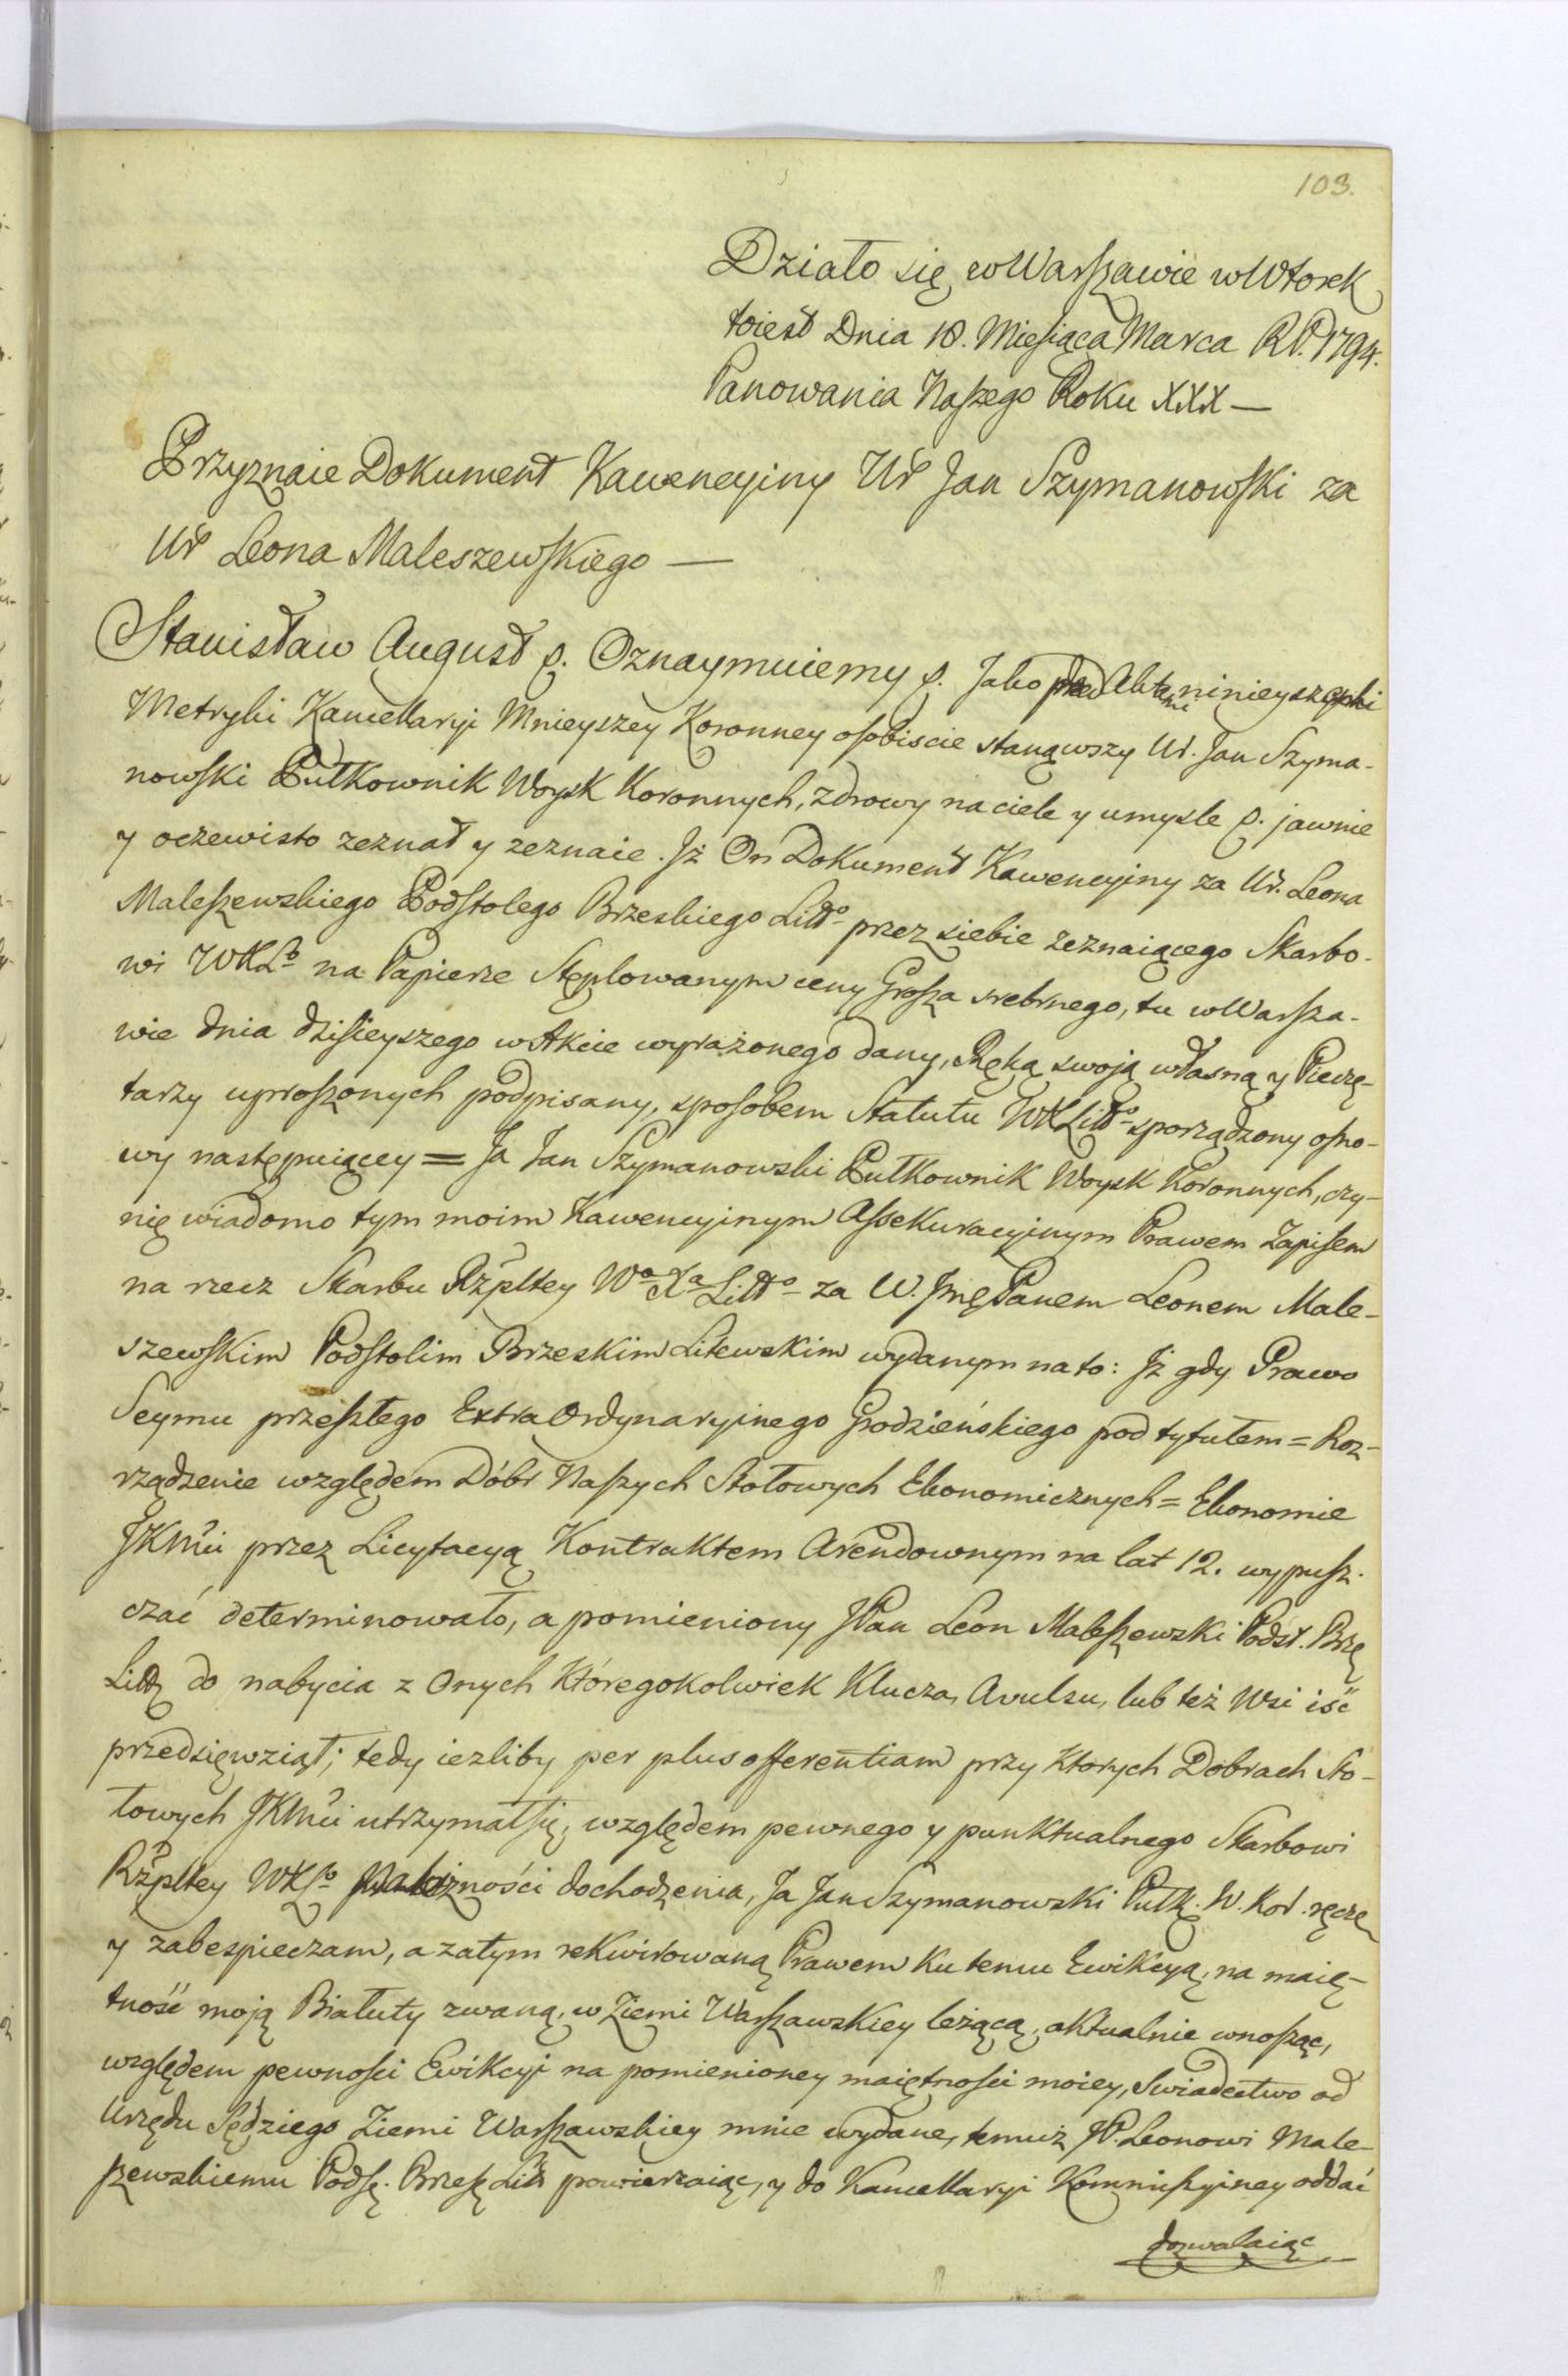 103.
Działo się w Warszawie w Wtorek
toiest Dnia 18. Miesiąca Marca R.P. 1794.
Panowania Naszego Roku XXX —
Przyznaie Dokument Kawencyiny Ur Jan Szymanowski za
Ur Leona Maleszewskiego —
Stanisław August &. Oznaymuiemy &. Jako przed Aktami ninieyszemi
Metryki Kancellaryi Mnieyszey Koronney osobiscie stanąwszy Ur. Jan Szyma-
nowski Pułkownik Woysk Koronnych, zdrowy na ciele y umysle &. jawnie
y oczewisto zeznał y zeznaie. Jż On Dokument Kawencyiny za Ur. Leona
Maleszewskiego Podstolego Brzeskiego Littō przez siebie zeznaiącego Skarbo-
wi WXLo na Papierze Stęplowanym ceny Grosza srebrnego, tu w Warsza-
wie dnia dzisieyszego w Akcie wyrażonego dany, Ręką swoją własną y Pieczę-
tarzy uproszonych podpisany, sposobem Statutu WXLitto sporządzony osno-
wy następuiącey = Ja Jan Szymanowski Pułkownik Woysk Koronnych, czy-
nię wiadomo tym moim Kawencyinym Assekuracyinym Prawem Zapisem
na rzecz Skarbu Rzpltey Wo Xa Litto za W. Jmę Panem Leonem Male-
szewskim Podstolim Brzeskim Litewskim wydanym na to: Jż gdy Prawo
Seymu przeszłego ExtraOrdynaryinego Grodzieńskiego pod tytułem = Roz-
rządzenie względem Dóbr Naszych Stołowych Ekonomicznych = Ekonomie
JKMci przez Licytacyą Kontraktem Arendownym na lat 12. wypusz-
czać determinowało, a pomieniony JPan Leon Maleszewski Podst. Brzę
Littę do nabycia z Onych któregokolwiek Klucza, Avulsu, lub też Wsi iść
przedsięwziął; tedy iezliby per plus offerentiam przy ktorych Dobrach Sto-
łowych JKMci utrzymał się, względem pewnego y punktualnego Skarbowi
Rzpltey WXLo Należności dochodzenia, Ja Jan Szymanowski Pułk. W. Kor. ręczę
y zabespieczam, a zatym rekwirowaną Prawem ku temu Ewikcyą, na maię-
tność moją Białuty zwaną, w Ziemi Warszawskiey leżącą, aktualnie wnosząc,
względem pewności Ewikcyi na pomienioney maiętnosci moiey, Swiadectwo od
Urzędu Sędziego Ziemi Warszawskiey mnie wydane, temuż JP. Leonowi Male-
szewskiemu Podsę. Brzesę Litt powierzaiąc, y do Kancellaryi Kommissyiney oddać
dozwalaiąc